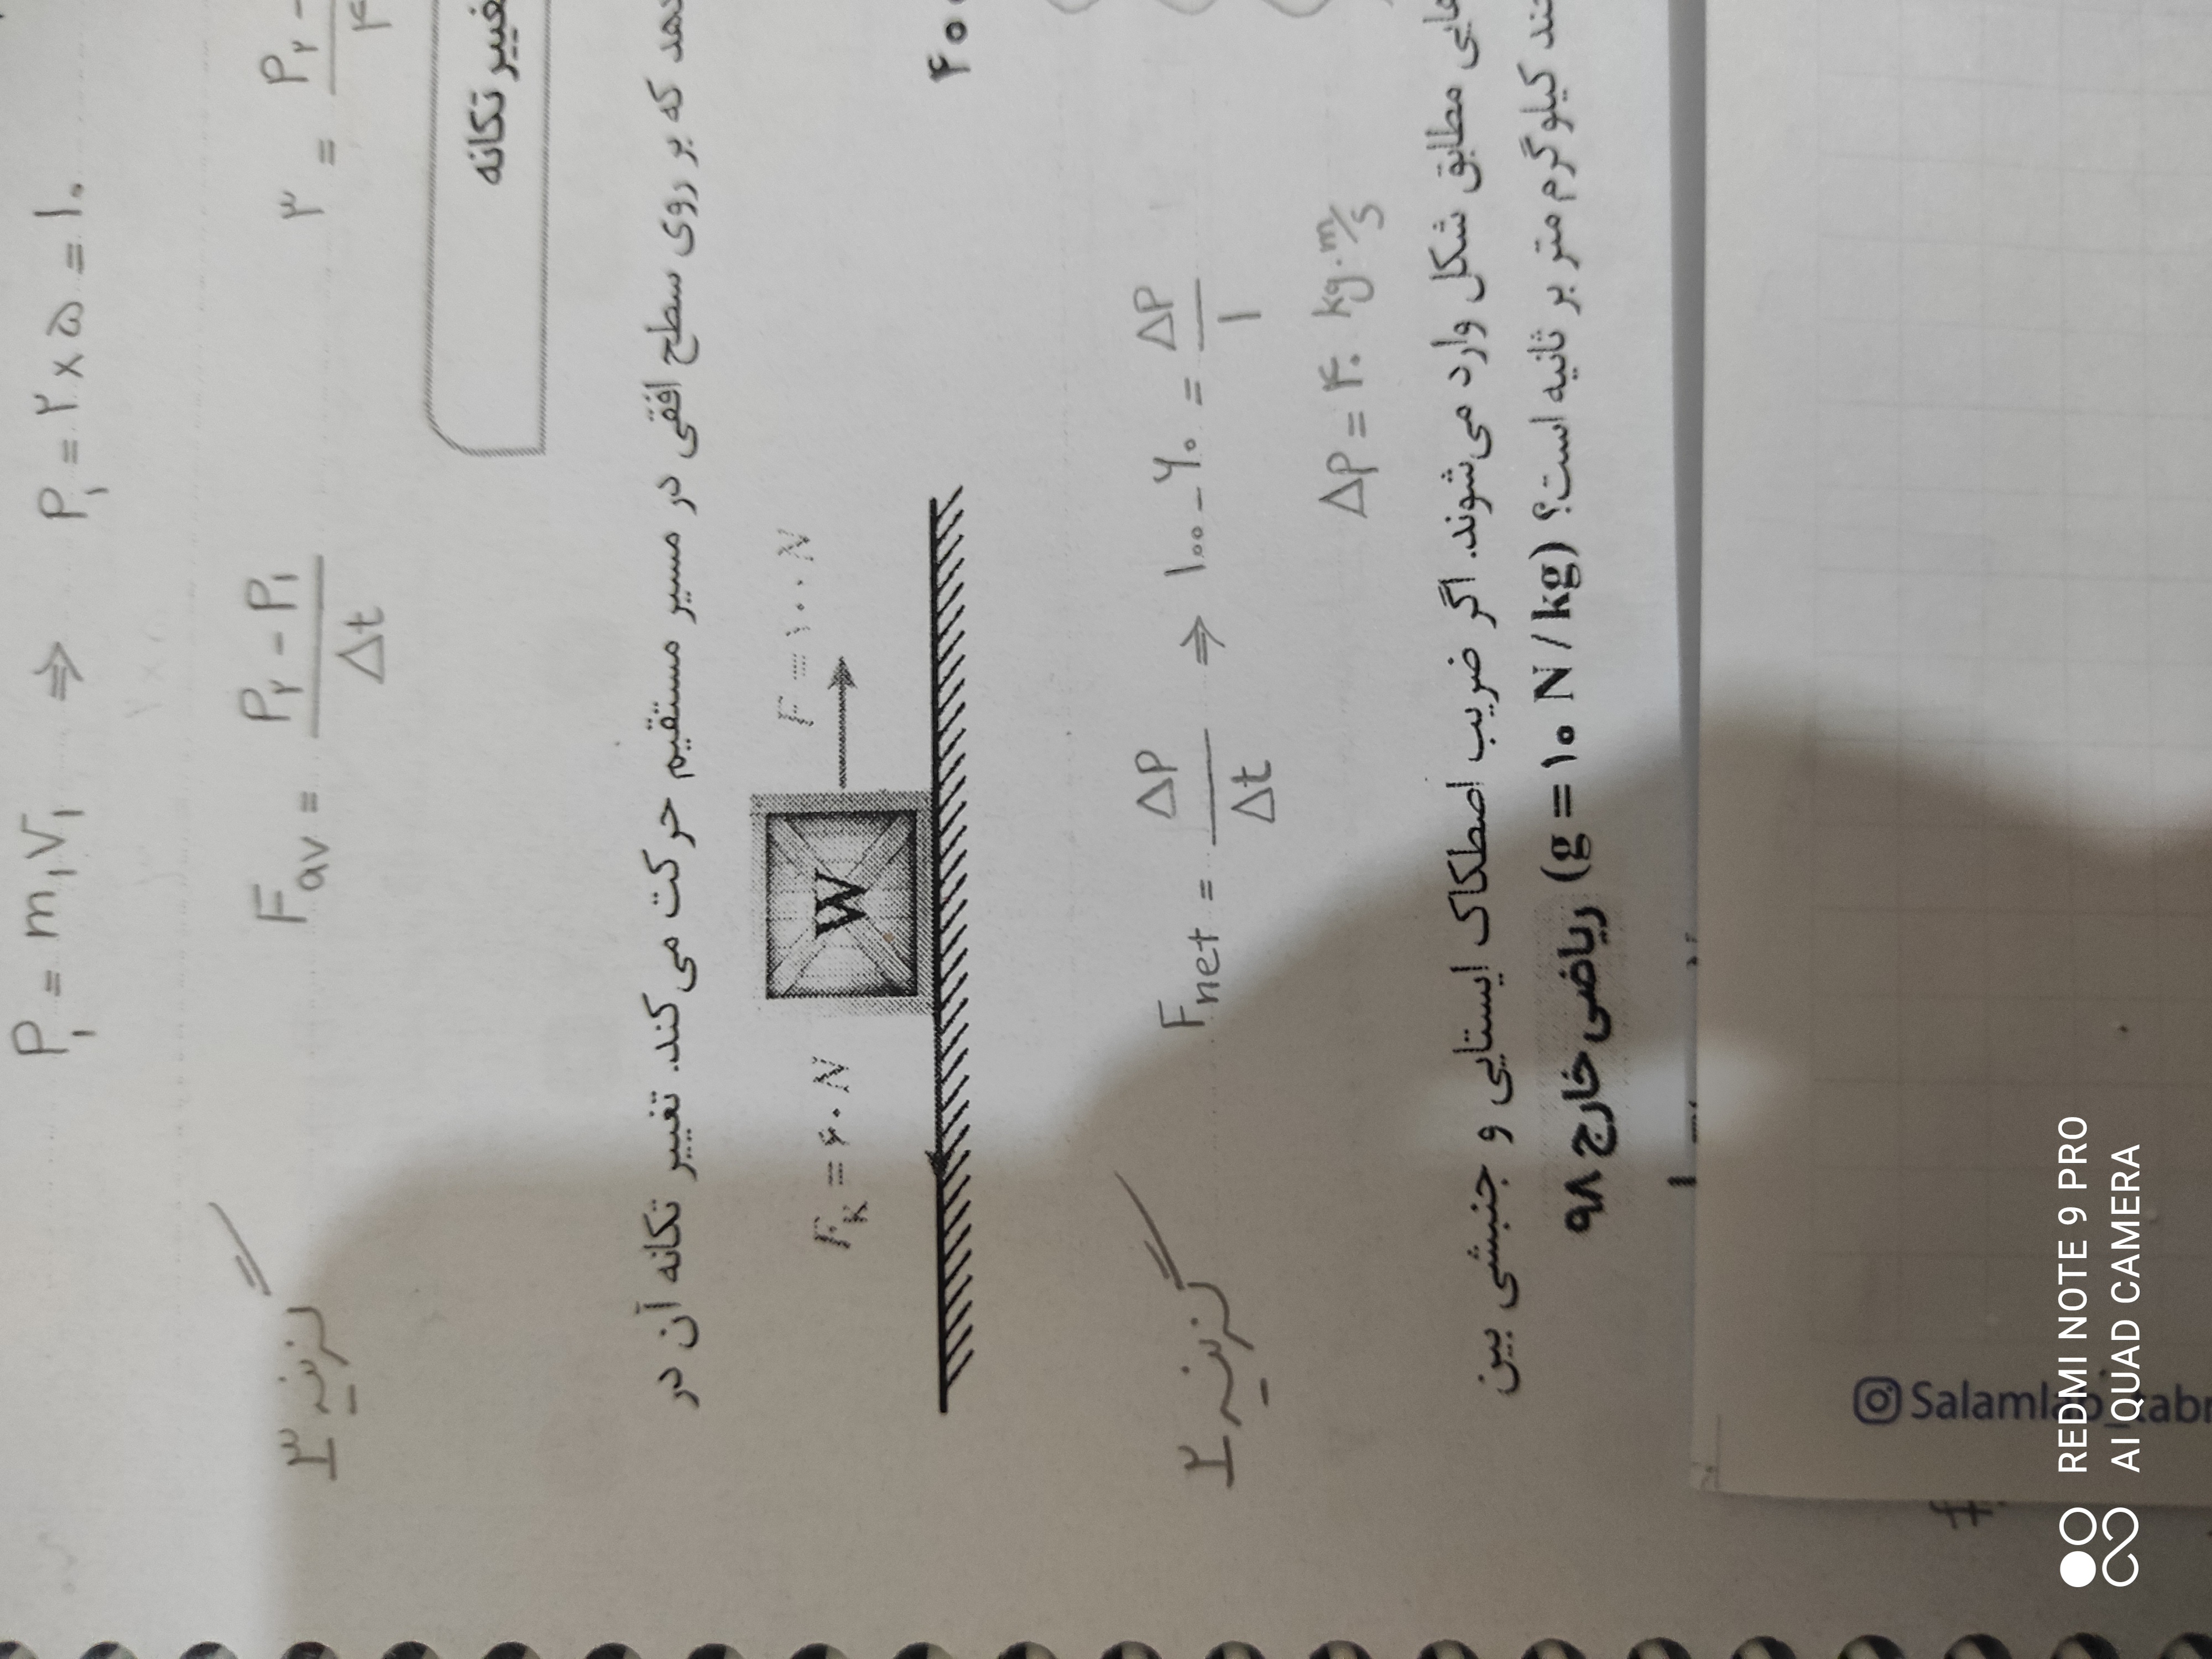 P₁ = m₁V₁ ⇒ P₁ = ۲×۵ = ۱۰
F_av = (P₂ - P₁)/Δt
۳ = P₂ -
گزینه ۳
تغییر تکانه
که بر روی سطح افقی در مسیر مستقیم حرکت می‌کند. تغییر تکانه آن در
F = ۱۰۰ N
W
F_k = ۶۰ N
۴۰
F_net = ΔP/Δt ⇒ ۱۰۰ - ۶۰ = ΔP/۱
ΔP = ۴۰ kg.m/s
گزینه ۲
مطابق شکل وارد می‌شوند. اگر ضریب اصطکاک ایستایی و جنبشی بین
کیلوگرم متر بر ثانیه است؟ (g = ۱۰ N / kg) ریاضی خارج ۹۸
REDMI NOTE 9 PRO
AI QUAD CAMERA